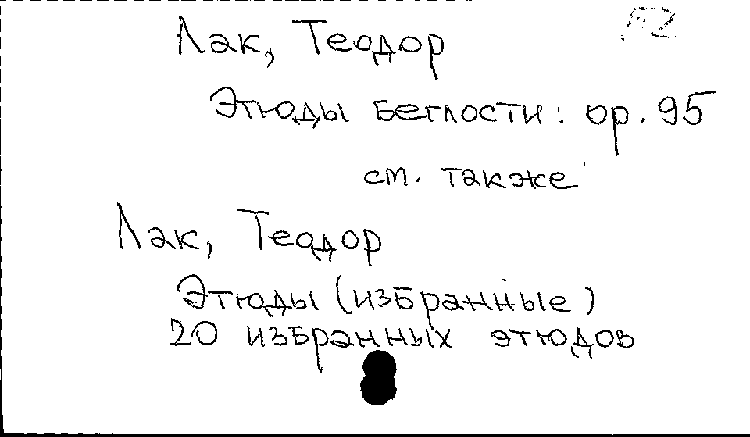 Лак, Теодор
Этюды беглости: ор. 95
см. также
Лак, Теодор
Этюды (избранные)
20 избранных этюдов